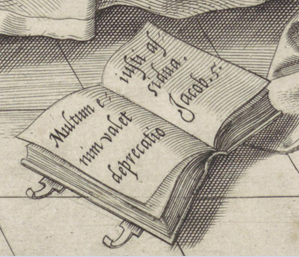 Multum e-
nim valet
deprecatio
iusti as-
sidua.
Jacob. 5.